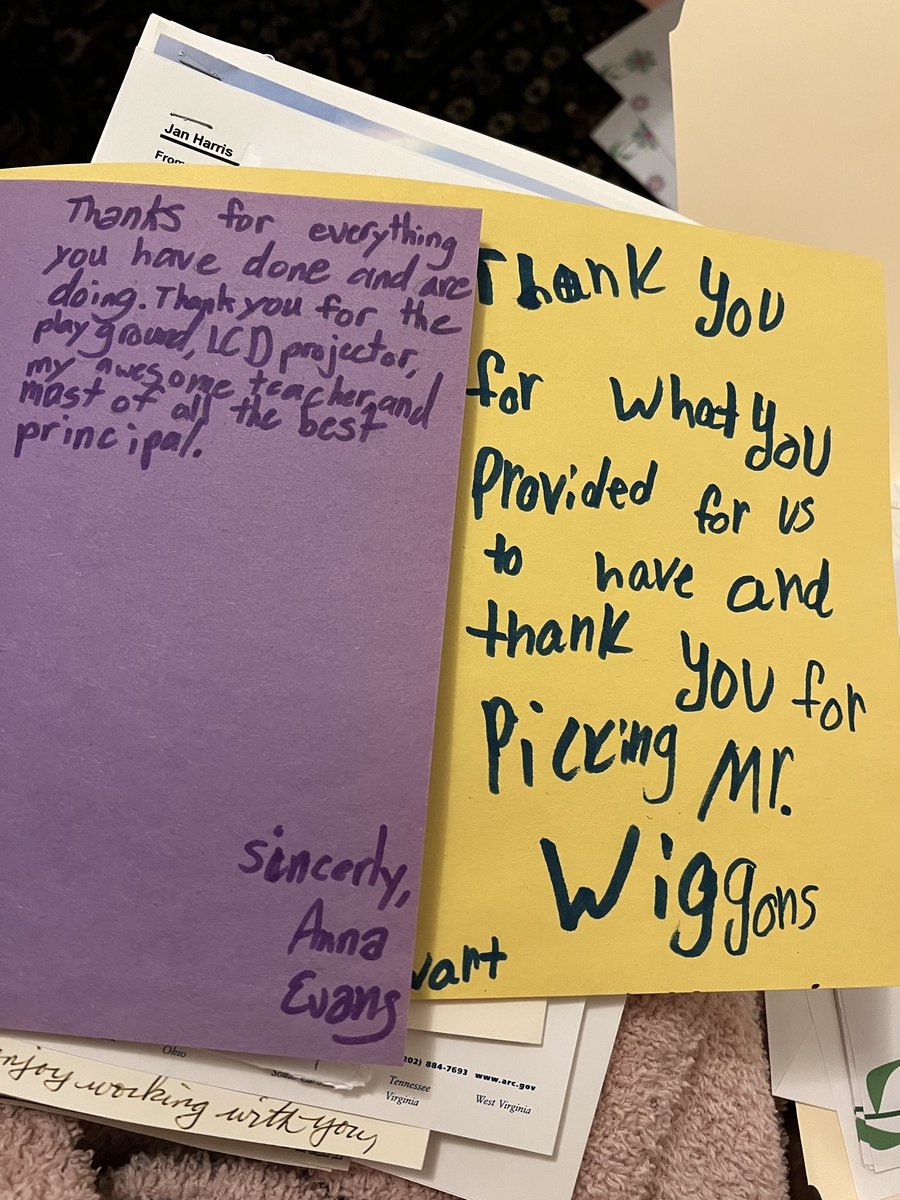 Jan Harris
From
Thanks for everything
you have done and are
doing. Thank you for the
playground, LCD projector,
my awesome teacher, and
most of all the best
principal.
sincerly,
Anna
Evans
Thank you
for what you
provided for us
to have and
thank you for
Picking Mr.
Wiggons
vart
Ohio
(202) 884-7693 www.arc.gov
Tennessee
Virginia
West Virginia
enjoy working with you,